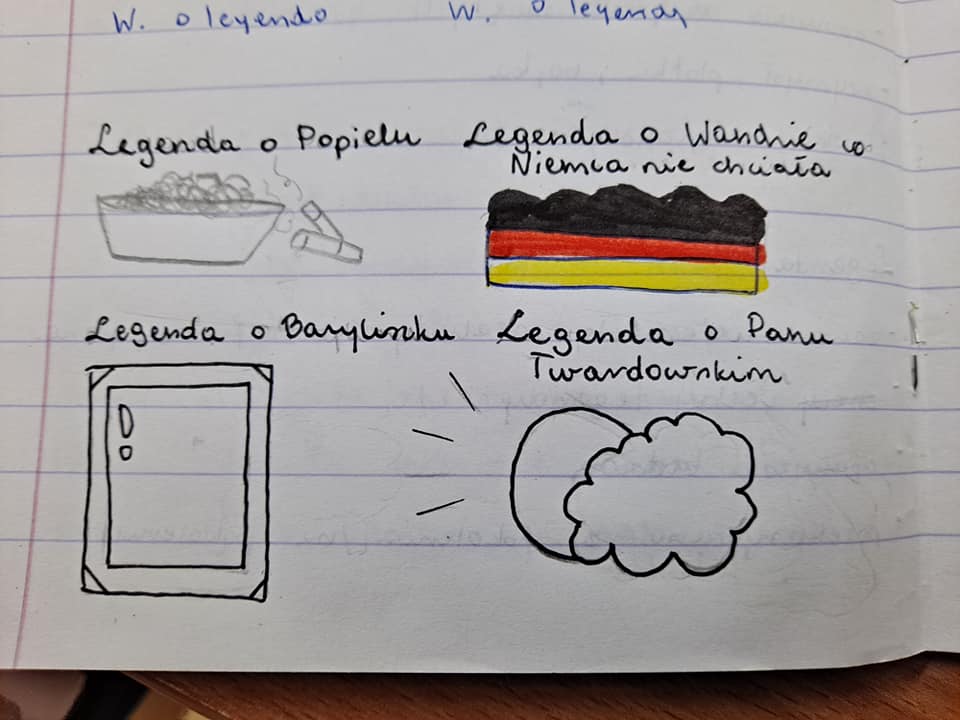 W. o W. o
Legenda o Popielu
Legenda o Wandzie co
Niemca nie chciała
Legenda o Bazyliszku
Legenda o Panu
Twardowskim